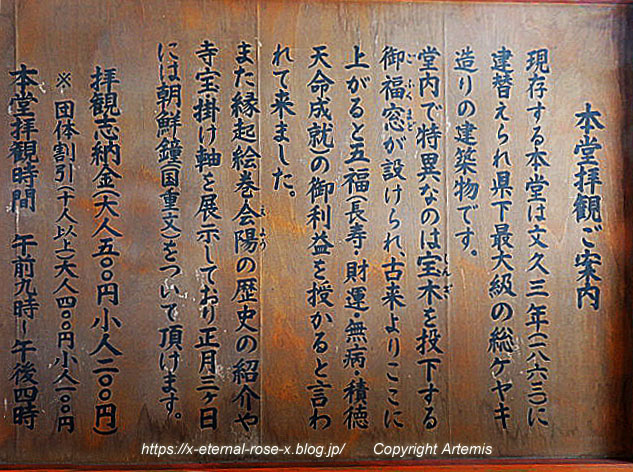 本堂拝観ご案内
現存する本堂は文久三年(一八六三)に
建替えられ県下最大級の総ケヤキ
造りの建築物です。
堂内で特異なのは宝木を投下する
しんぎ
御福窓が設けられ古来よりここに
ごふくまど
上がると五福(長寿・財運・無病・積徳
天命成就の御利益を授かると言わ
れて来ました。
また縁起絵巻会陽の歴史の紹介や
えよう
寺宝掛け軸を展示しており正月三ヶ日
には朝鮮鐘(国重文)をついて頂けます。
拝観志納金(大人五〇〇円小人二〇〇円)
※団体割引(十人以上)大人四〇〇円小人一〇〇円
本堂拝観時間 午前九時~午後四時
https://x-eternal-rose-x.blog.jp/ Copyright Artemis